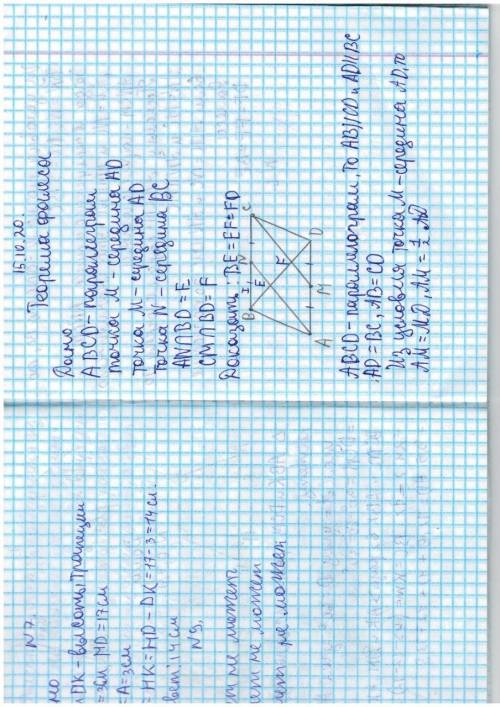 N7.
но
DK - высоты трапеции
= 3см MD = 17см
= A = 3см
= HK = HD - DK = 17 - 3 = 14 см.
вет: 14 см
N9.
ет не может
ет не может
ет не может
15.10.20.
Теорема фалеса
Дано
ABCD - параллеграм
точка M - середина AD
точка M - середина AD
точка N - середина BC
AN∩BD = E
CM∩BD = F
Доказать: BE = EF = FD
B N C
E F
A M D
ABCD - параллелограм, то AB||CD и AD||BC
AD = BC, AB = CD
Из условия точка M - середина AD, то
AM = MD, AM = 1/2 AD